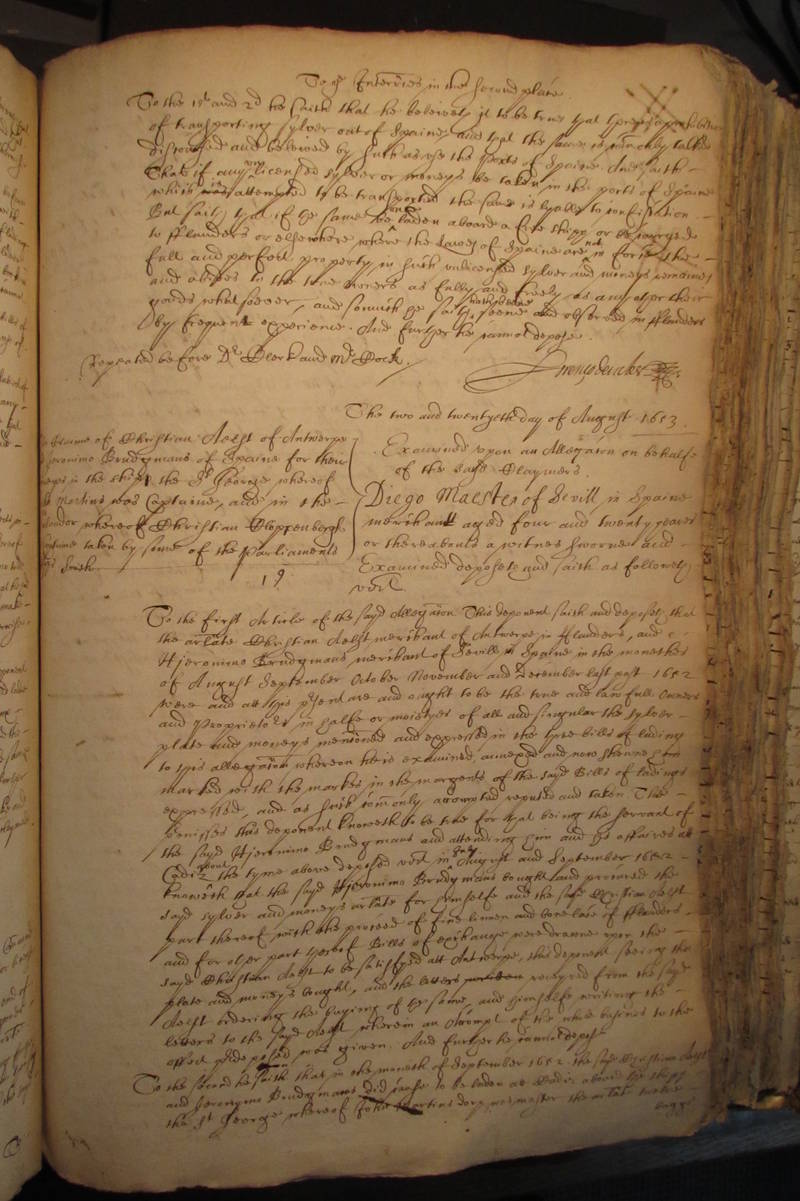 To the Interries in the second place.
To the 1st and 2d he saith that he beleiveth it to be true that there is a prohibition
of transporting sylver out of Spaine and that the same is comonly talked
discoursed and beleived by such as use the ports of Spaine And saith
That if any unlicensed sylver or moneys be taken in the ports of Spaine
which is attempted to be transported the same is lyable to confiscation
But saith that if the same be once laden aboard a free shipp or be carryed
to fflanders or elsewhere where the Lawes of Spaine are not in force the
full and perfect property in such unlicensed sylver and moneys remaines
and abides in the true owners as fully and freely as any other their
goods whatsoever, and soe much he saith hath beene seene and observed in fflanders
by frequent experience. And further he cannot depose.
Repeated before Dr Clerk and Mr Dock.
The two and twentyeth day of August 1653.
Clayme of Christian Aelst of Antwerpe
Jeronimo Brudegmans of Spaine for their
in the shipp the St George whereof
Martins was Captaine, and in the
whereof Christian Cloppenbergh
taken by some of the Parliaments
Examined upon an Allegaton on behalfe
of the said Claymers.
Diego Maestes of Sevill in Spaine
merchant aged four and twenty yeares
or thereabouts a witnes sworne and
Examined deposeth and saith as followeth
vizt
19
To the first Article of the sayd Allegaton This deponent saith and deposeth that
the arlate Christian Aelst merchant of Antwerpe in fflanders, and
Hjeronimo Brudegmans merchant of Seville in Spaine in the monethes
of August September October November and December last past 1652
were and at this present are and ought to be the true and lawfull Owners
and Proprietors in halfe or moietyes of all and singular the sylver
plate and moneys mentioned and expressed in the three bills of lading
to this allegaton whereon hee is examined, annexed and now shewne him
marked with the markes in the margents of the sayd Bills of ladings
expressed, and as such comonly accompted reputed and taken The
premisses this deponent knoweth to be true for that being the servant of
the sayd Hjeronimo Brudegmans and attending him and his affaires at
Cadiz about the tyme above deposed vizt in July August and September 1652
knoweth that the sayd Hjeronimo Brudegmans bought and procured the
sayd sylver and moneys arlate for himselfe and the said Christian Aelst
part thereof with the proceed of fine linnen and bone lace of fflanders
and for other part thereof Bills of exchange were drawne upon the
sayd Christian Aelst to be satisfyed att Antwerpe, this deponent seeing the
plate and moneys bought, and the letters received from the sayd
Aelst ordering the buying of the same, and himselfe writing the
letters to the sayd Aelst wherein an Accompt of the whole busines to the
effect predeposed was given. And further he cannot depose
To the second he saith that in the moneth of September 1652 the sayd Christian Aelst
and Jeronymo Brudegmans did cause to be laden at Cadiz aboard the shipp
the St George whereof John Martins dorp was master the arlate twelve
baggs